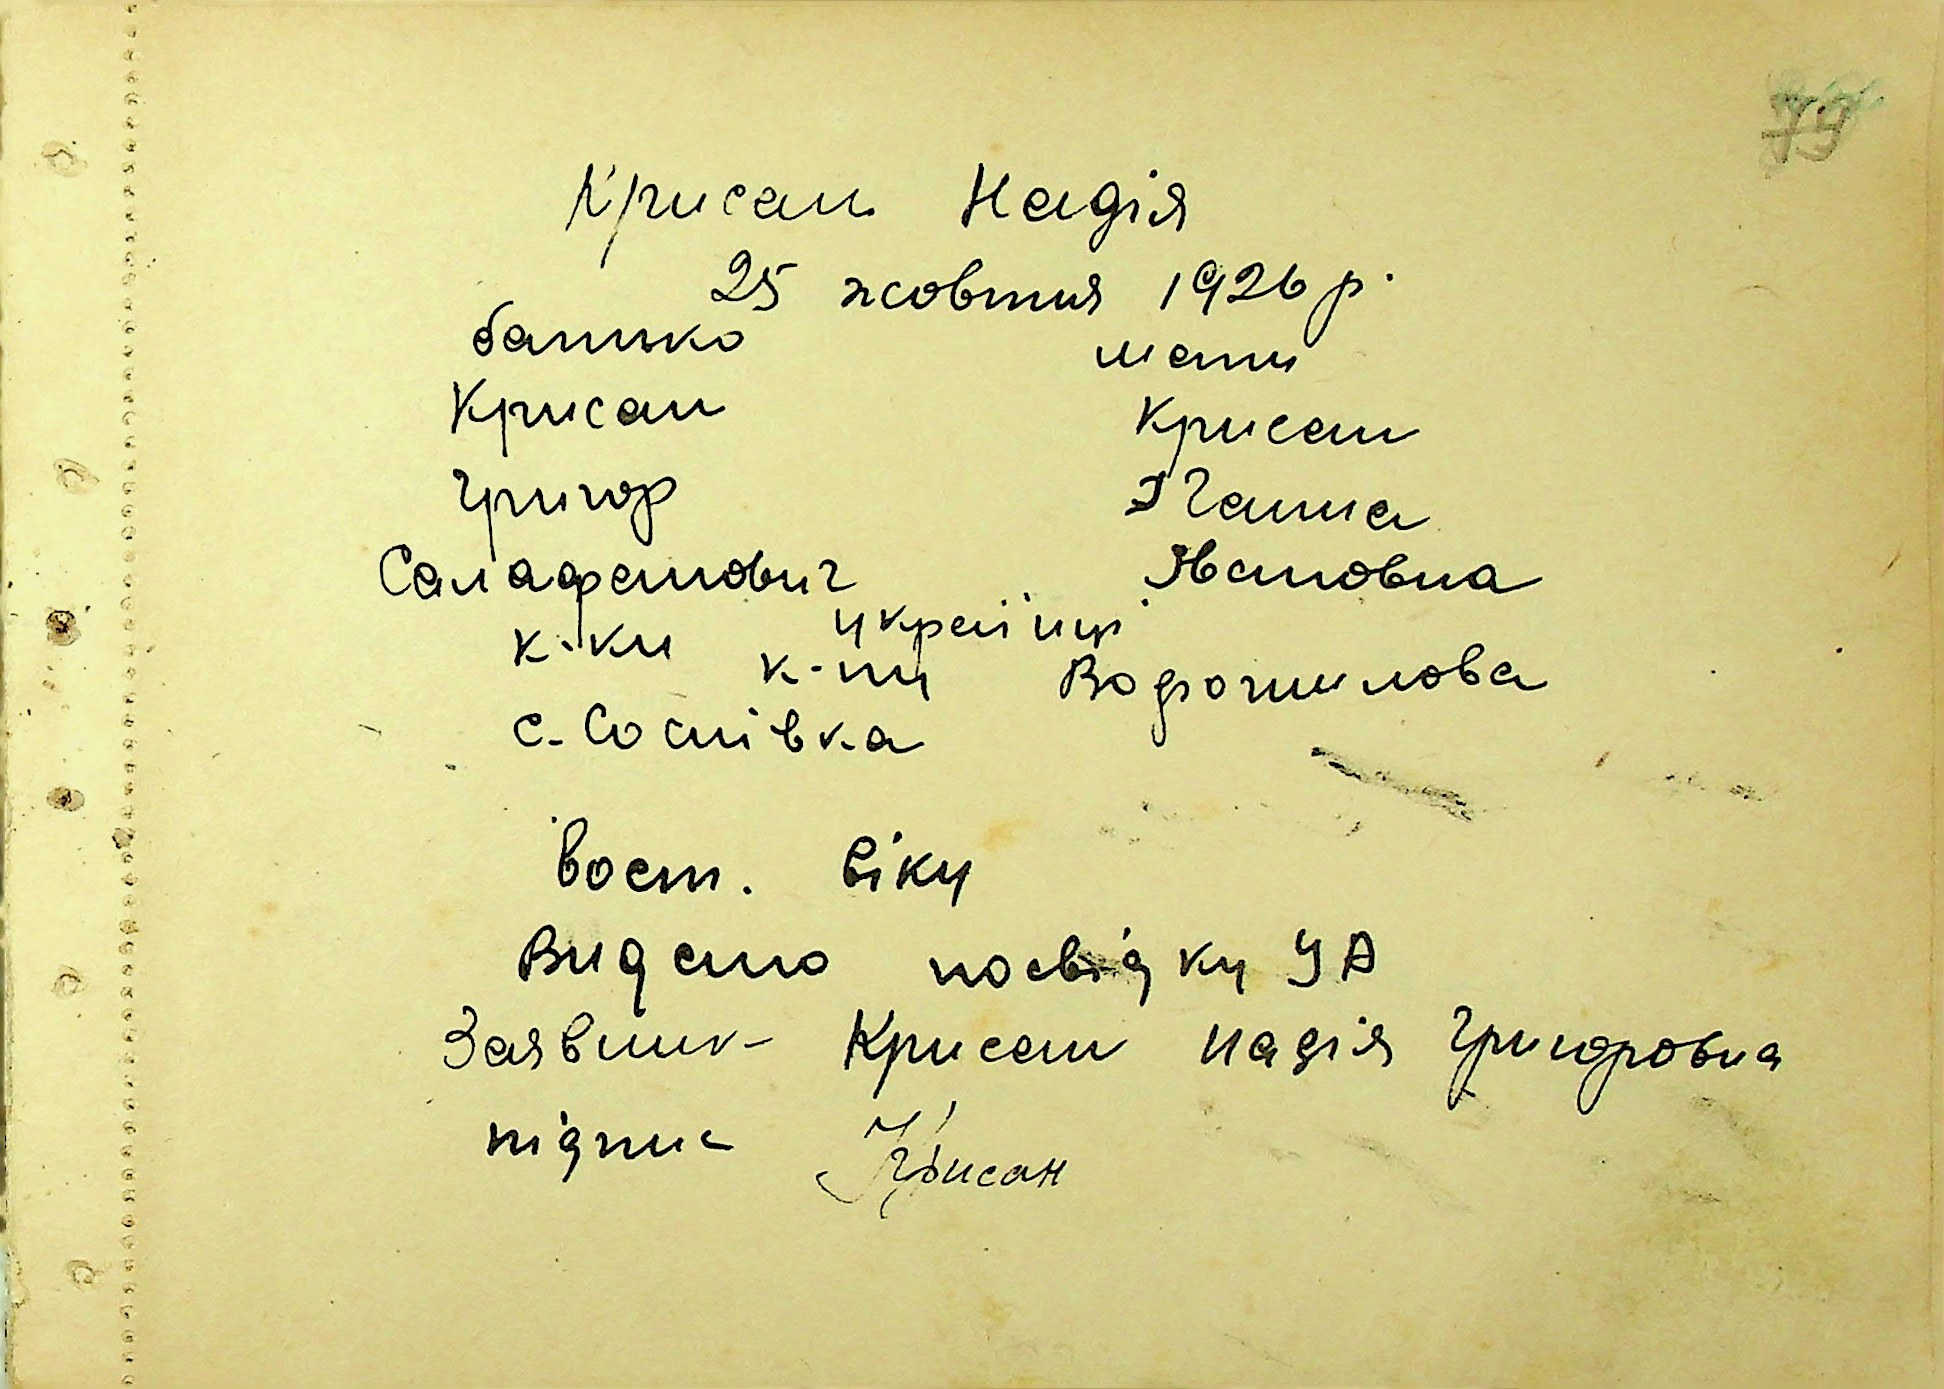 79
Крисан Надія
25 жовтня 1926 р.
батько мати
Крисан Крисан
Григор Ганна
Салафанович Івановна
українці
к-ки к-пу Ворошилова
с. Соснівка
вост. віку
Видано посвідку УА
Заявник - Крисан Надія Григоровна
підпис Крисан